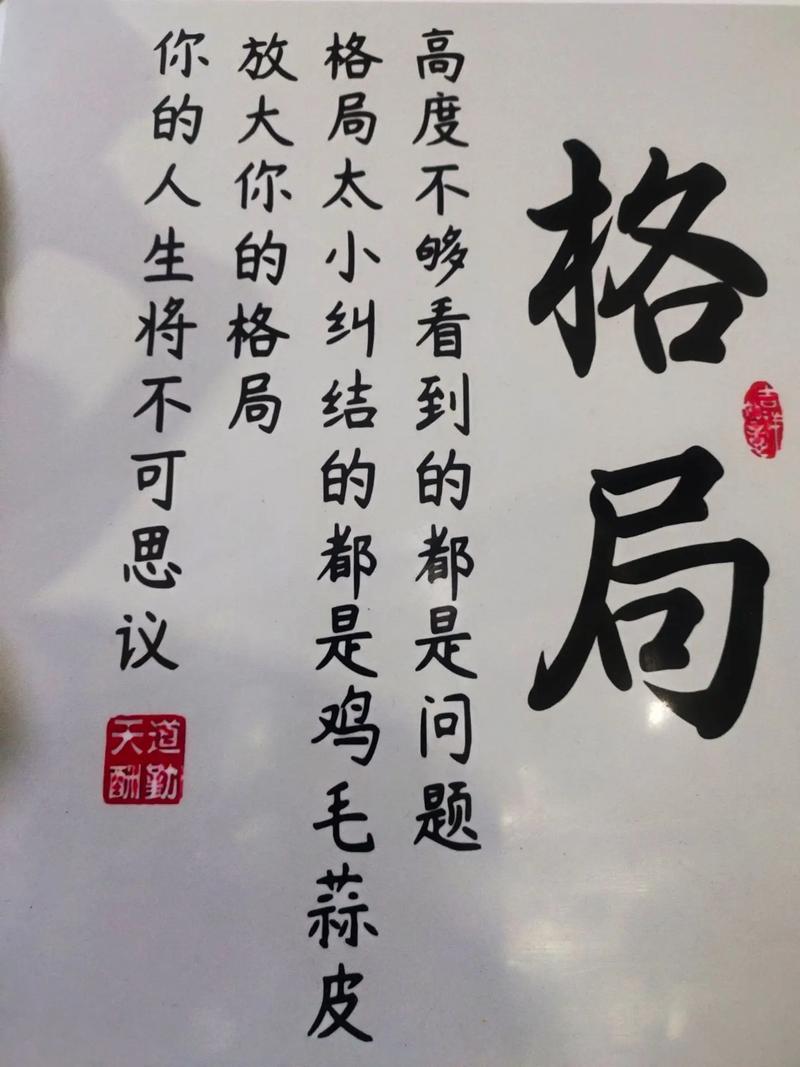 格局
高度不够看到的都是问题
格局太小纠结的都是鸡毛蒜皮
放大你的格局
你的人生将不可思议
天道
酬勤